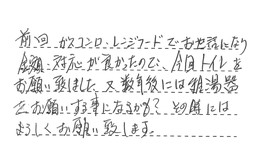 前回 ガスコンロ・レンジフードでお世話になり
金額・対応が良かったので、今回トイレを
お願い致しました 又数年後には給湯器
でお願いする事になるかも? その際には
よろしくお願い致します。